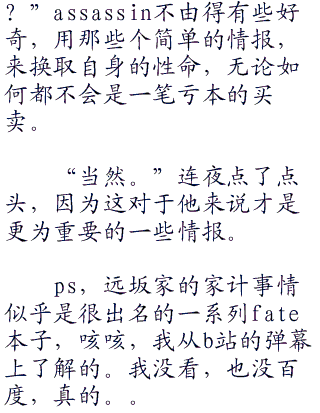 ？”assassin不由得有些好
奇，用那些个简单的情报，
来换取自身的性命，无论如
何都不会是一笔亏本的买
卖。
“当然。”连夜点了点
头，因为这对于他来说才是
更为重要的一些情报。
ps，远坂家的家计事情
似乎是很出名的一系列fate
本子，咳咳，我从b站的弹幕
上了解的。我没看，也没百
度，真的。。